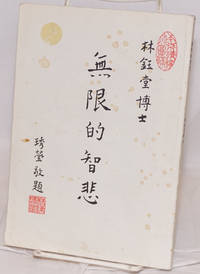 林鈺堂博士
無限的智悲
琦瑩敬題